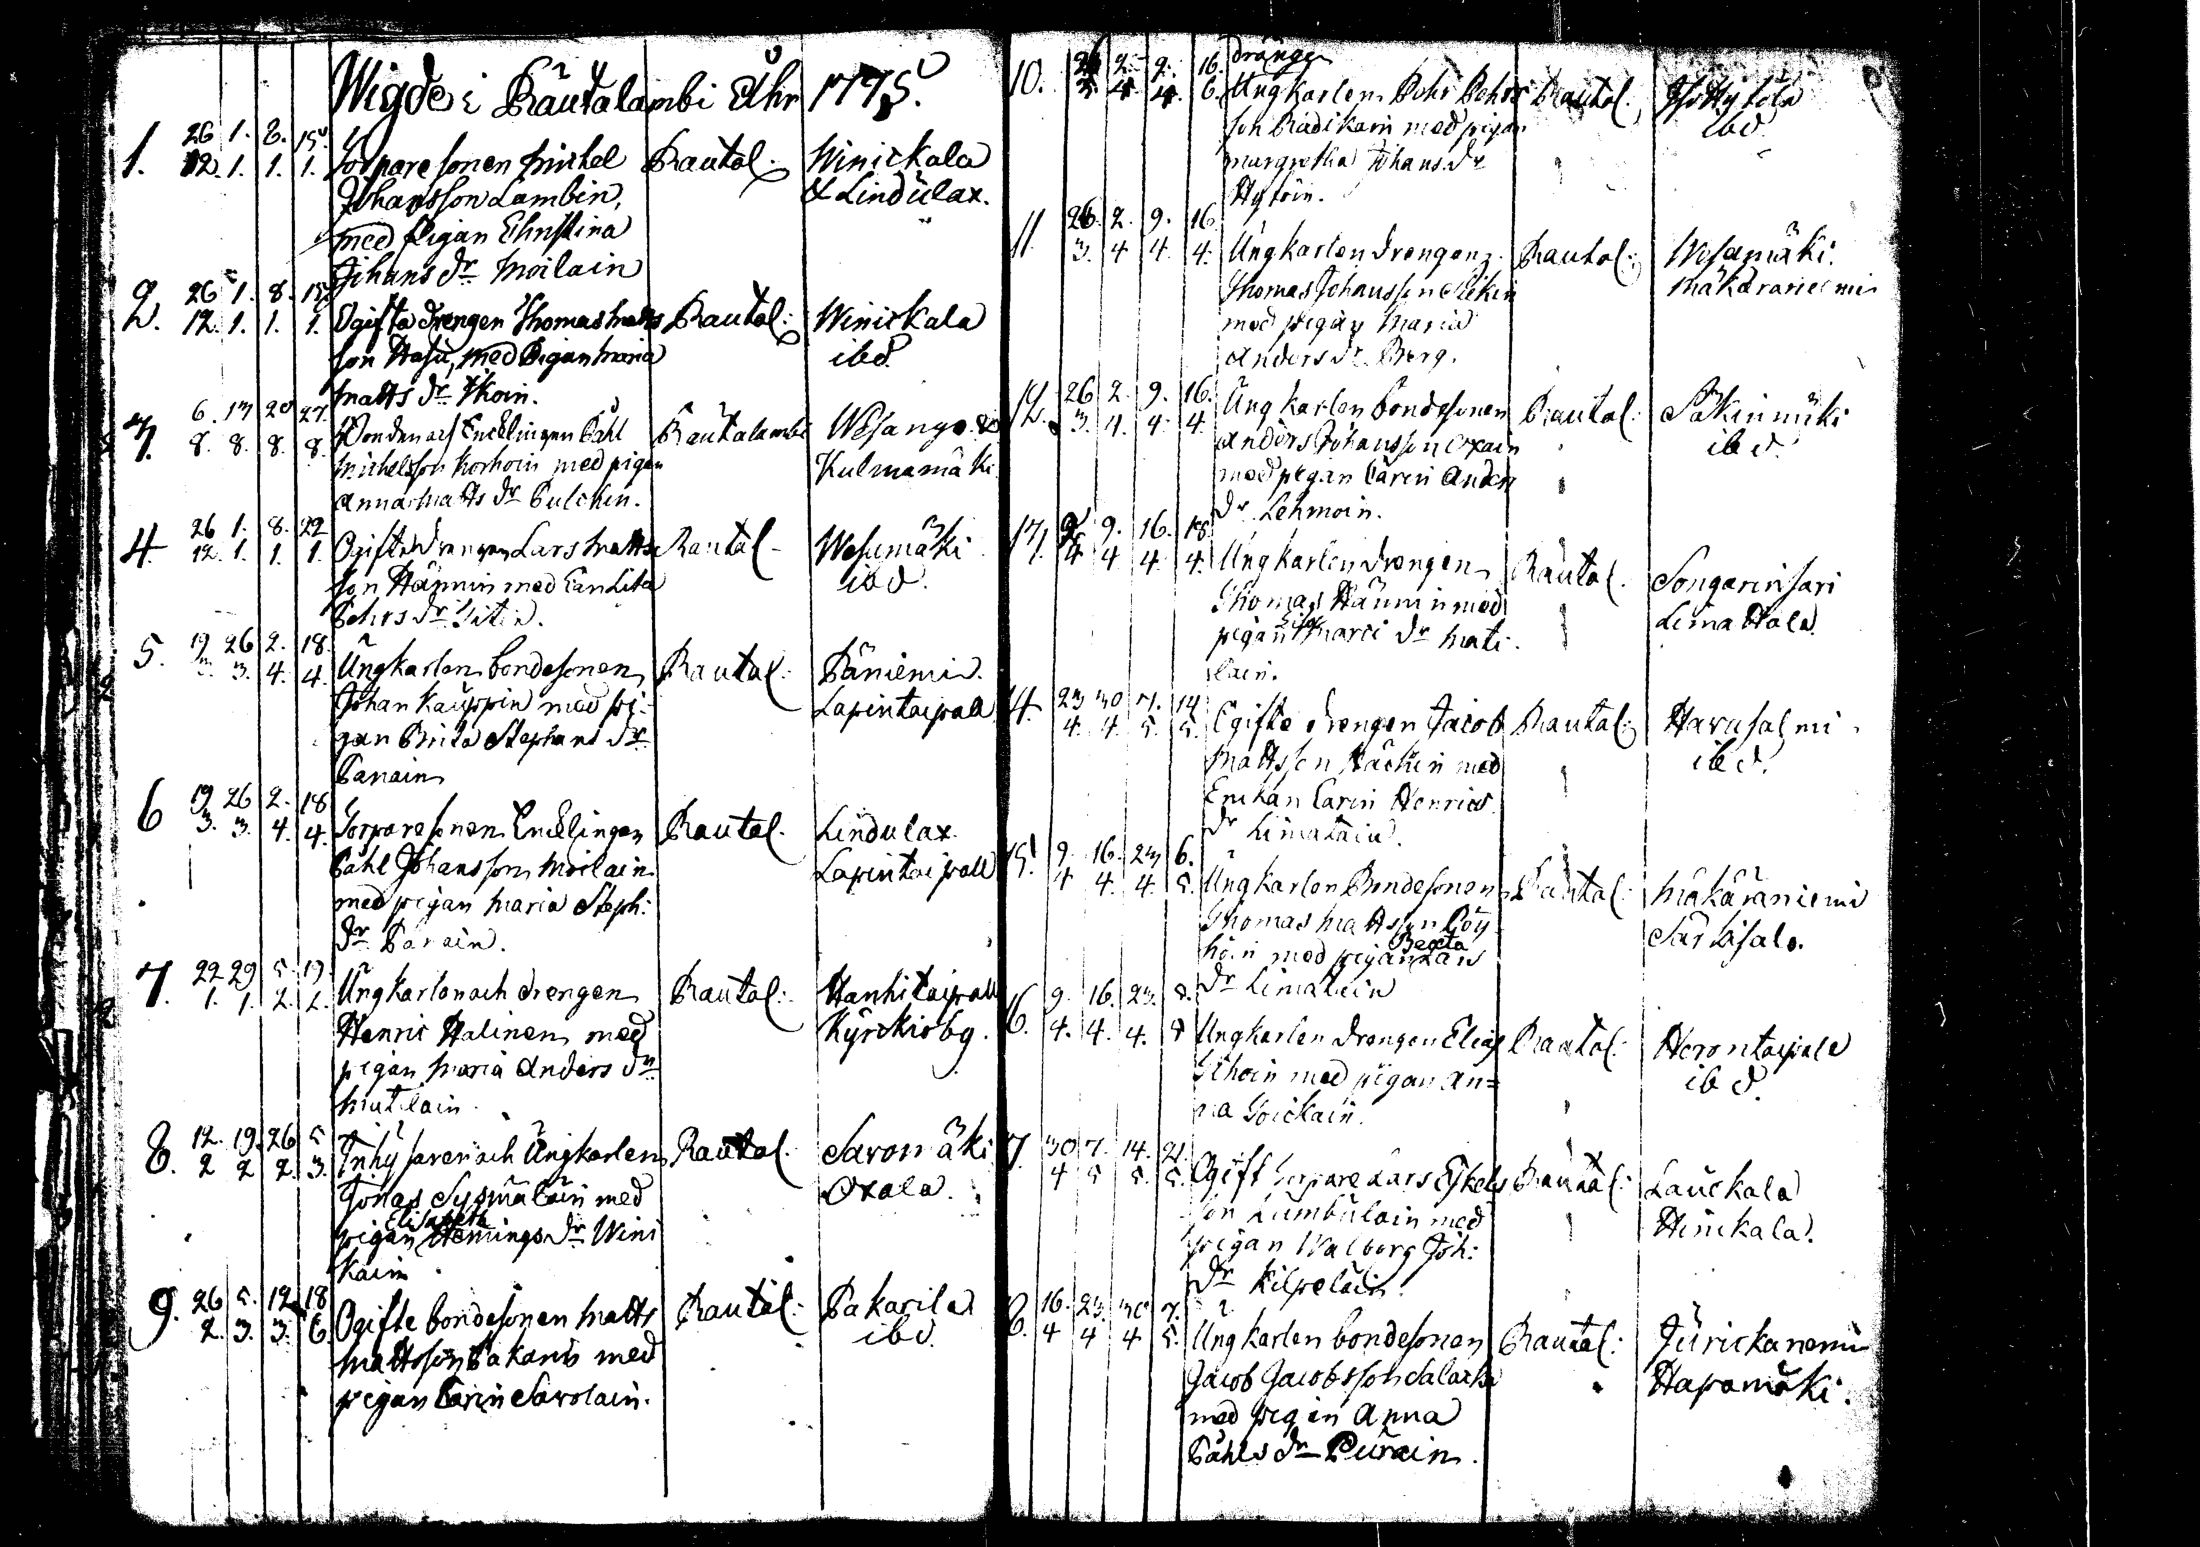 Wigde i Rautalambi Åhr 1775.
1. 26 1. 8. 15.
12. 1. 1. 1. Torpare sonen Michel Rautal. Winickala
Johansson Lambin, & Lindulax.
med Pigan Christina
Johans dr Moilain
2. 26 1. 8. 15
12. 1. 1. 1. Ogifta drengen Thomas Matts Rautal: Winickala
son Hasu, med Pigan Maria ibd.
Matts dr Ikoin.
3. 6. 13 20 27.
8. 8. 8. 8. Bonden och Encklingen Påhl Rautalambi Wesango &
Michelsson Korhoin med pigan Kulmamäki
Anna Matts dr Pulckin.
4. 26 1. 8. 22
12. 1. 1. 1. Ogifte drengen Lars Matts Rautal. Wesumäki
son Hännin med Enk Lisa ibd.
Pehrs dr
5. 19 26 2. 18.
3. 3. 4. 4. Ungkarlen bondesonen Rautal. Päniemi
Johan Kauppin med pi- Lapintaipall
gan Brita Stephans dr
Panain
6 19 26 2. 18
3. 3. 4. 4. Torparesonen Encklingen Rautal. Lindulax.
Påhl Johansson Moilain Lapintaipall
med pigan Maria Steph:
dr Panain.
7. 22 29 5. 19.
1. 1. 2. 2. Ungkarlen och drengen Rautal: Hanhitaipall
Henric Halinen med Kyrckioby.
pigan Maria Anders dr
Mutilain.
8. 12. 19. 26 5
2 2 2. 3. Inhysaren och Ungkarlen Rautal. Savonmäki
Jonas Sysmäläin med Oxala.
Elisabeth
pigan Hemings dr Wini
kain
9. 26 5. 12. 18
2. 3. 3. 6. Ogifte bondesonen Matts Rautal: Pakarila
Mattsson Pakarin med ibd.
pigan Carin Savolain.
10. 26 2. 9. 16. drängen
3. 4 4. 6. Ungkarlen Pehr Pehrs Rautal:
son Rädikain med pigan ibd.
Margretha Johans dr
Hytöin.
11. 26. 2. 9. 16.
3. 4 4. 4. Ungkarlen drengen Rautal: Wesamäki.
Thomas Johansson Mäkäraniemi
med pigan Maria
Anders dr Berg.
12. 26 2. 9. 16.
3. 4. 4. 4. Ungkarlen bondesonen Rautal: Säkinmäki
Anders Johansson Oxain ibd.
med pigan Carin Anders
dr Lehmoin.
13. 2 9. 16. 18
4 4 4. 4. Ungkarlen drengen Rautal. Songarinsari
Thomas Hännin med Lima Hala.
pigan dr Mati-
lain.
14. 23 30 7. 14
4. 4. 5. 5. Ogifte drengen Jacob Rautal: Harusalmi
Mattsson Häckin med ibd.
Enckan Carin Henrics
dr Limatain.
15. 9. 16. 23 6.
4 4. 4. 5. Ungkarlen Bondesonen Rautal: Mäkäräniemi
Thomas Mattsson Pöy- Särkisalo.
Beata
höin med pigan Lars
dr Limatain
16. 9. 16. 23. 8.
4. 4. 4. Ungkarlen drengen Elias Rautal: Herontaipale
med pigan An= ibd.
na Toickain.
17. 30 7. 14. 21.
4 5 5. 5. Ogift torpare Lars Eskels Rautal: Lauckala
son Lumbulain med Hinickala.
pigan Walborg Joh:
dr Kilpeläin.
18. 16. 23. 30 7.
4 4 4 5. Ungkarlen bondesonen Rautal: Jurickanemi
Jacob Jacobsson Salacka Hapamäki.
med pigan Anna
Påhls dr Purain.